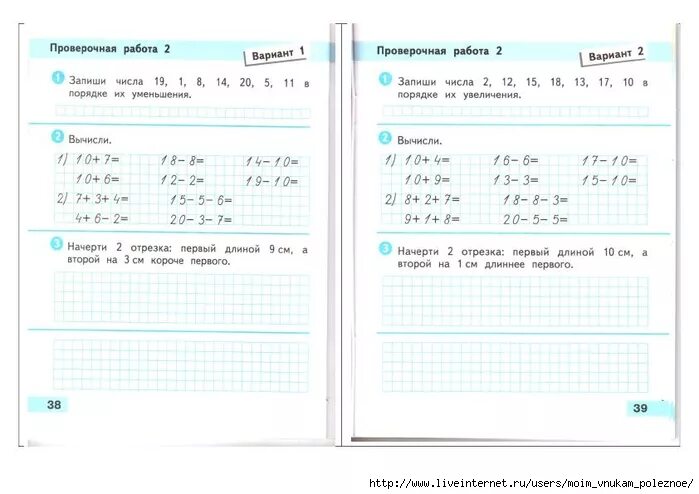 Проверочная работа 2
Вариант 1
1 Запиши числа 19, 1, 8, 14, 20, 5, 11 в
порядке их уменьшения.
2 Вычисли.
1) 10+7= 18-8= 14-10=
10+6= 12-2= 19-10=
2) 7+3+4= 15-5-6=
4+6-2= 20-3-7=
3 Начерти 2 отрезка: первый длиной 9 см, а
второй на 3 см короче первого.
38
Проверочная работа 2
Вариант 2
1 Запиши числа 2, 12, 15, 18, 13, 17, 10 в
порядке их увеличения.
2 Вычисли.
1) 10+4= 16-6= 17-10=
10+9= 13-3= 15-10=
2) 8+2+7= 18-8-3=
9+1+8= 20-5-5=
3 Начерти 2 отрезка: первый длиной 10 см, а
второй на 1 см длиннее первого.
39
http://www.liveinternet.ru/users/moim_vnukam_poleznoe/